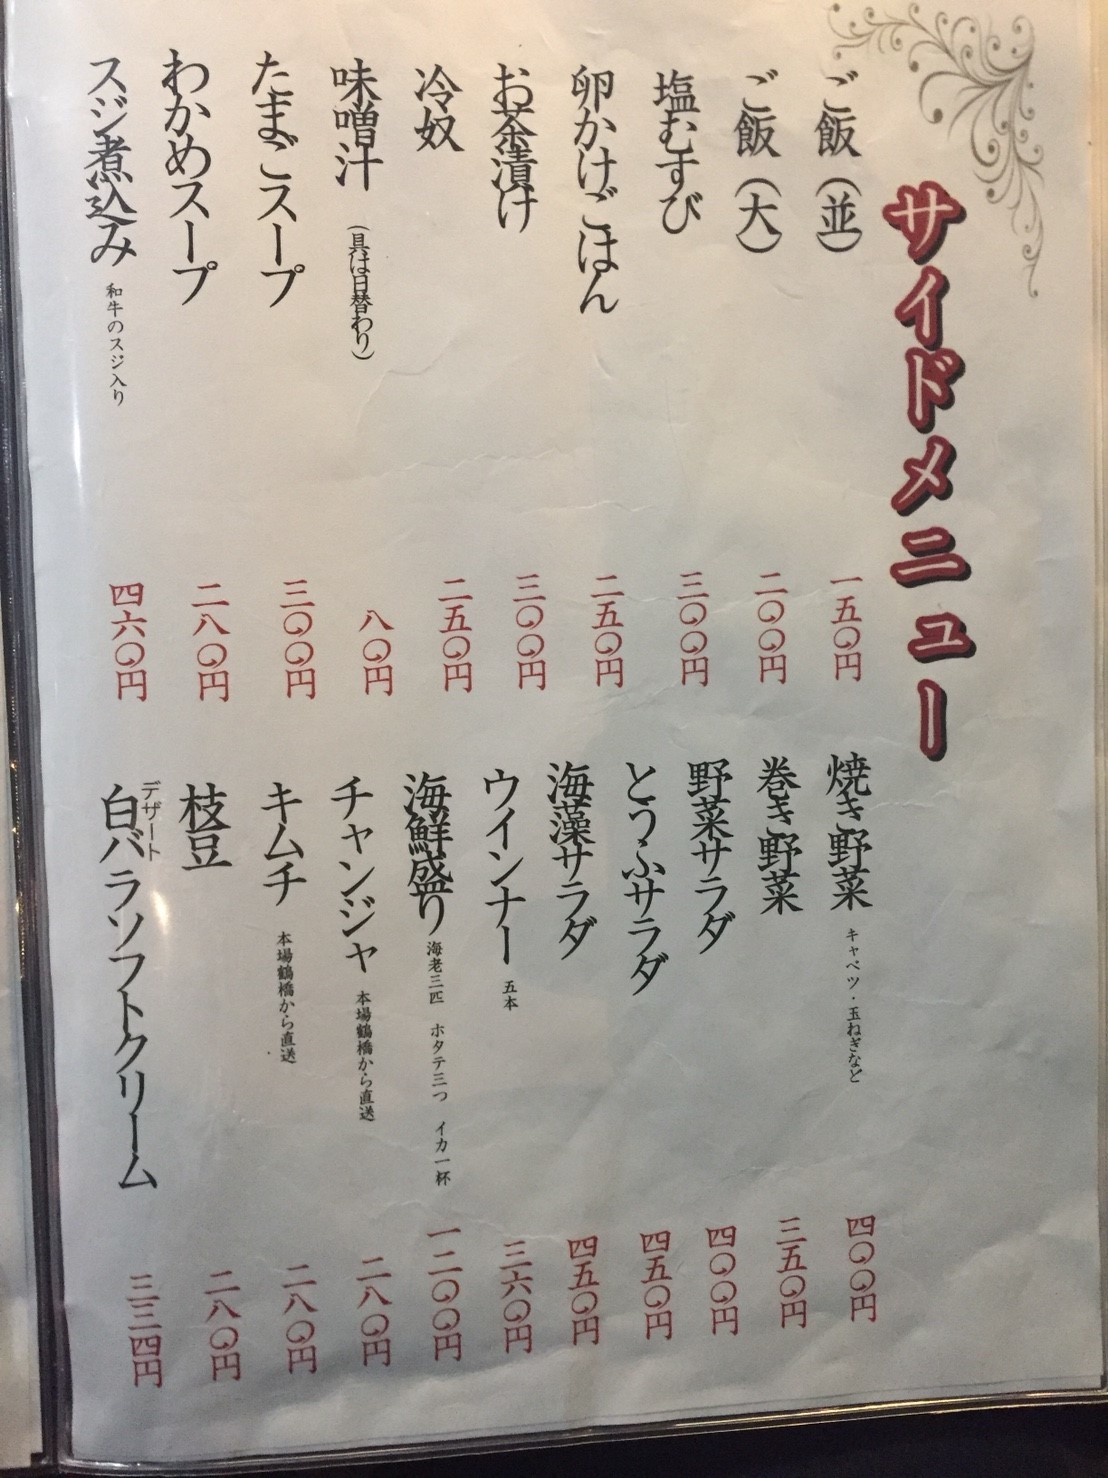 サイドメニュー
ご飯（並） 一五〇円
ご飯（大） 二〇〇円
塩むすび 三〇〇円
卵かけごはん 二五〇円
お茶漬け 三〇〇円
冷奴 二五〇円
味噌汁 （具は日替わり） 八〇円
たまごスープ 三〇〇円
わかめスープ 二八〇円
スジ煮込み 和牛のスジ入り 四六〇円
焼き野菜 キャベツ・玉ねぎなど 四〇〇円
巻き野菜 三五〇円
野菜サラダ 四〇〇円
とうふサラダ 四五〇円
海藻サラダ 四五〇円
ウインナー 五本 三六〇円
海鮮盛り 海老三匹 ホタテ三つ イカ一杯 一二〇〇円
チャンジャ 本場鶴橋から直送 二八〇円
キムチ 本場鶴橋から直送 二八〇円
枝豆 二八〇円
デザート
白バラソフトクリーム 三三四円